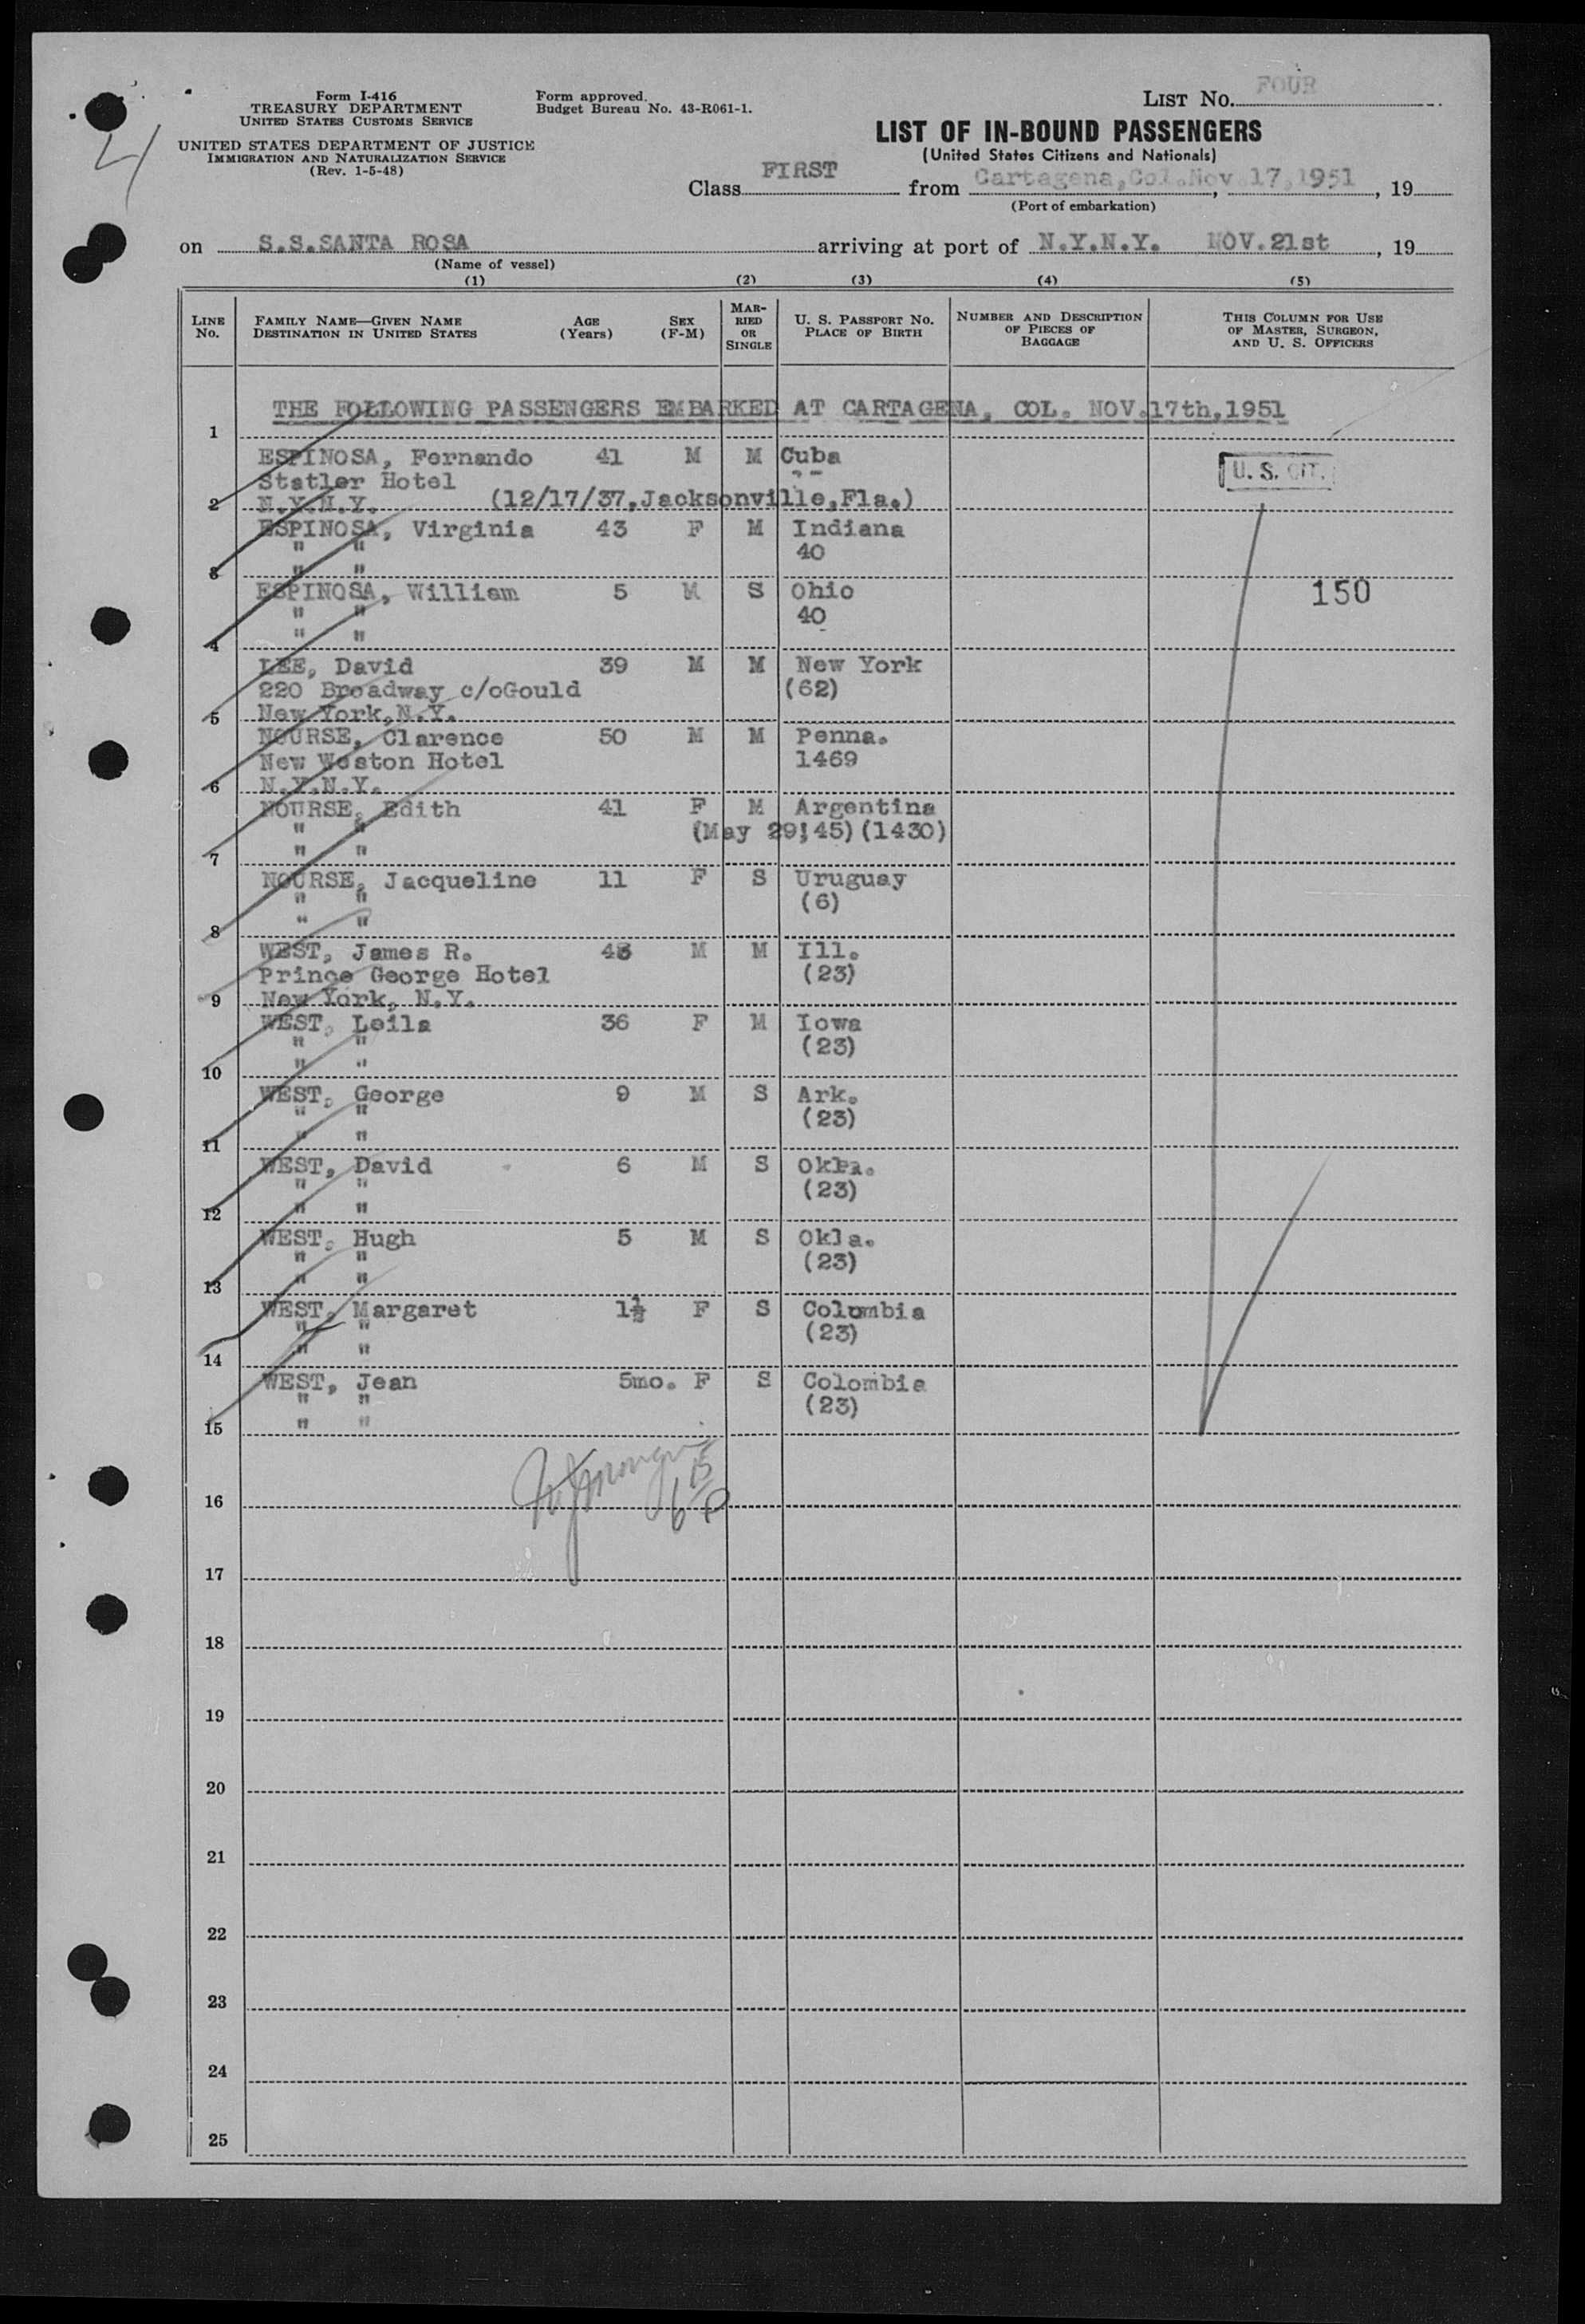 Form I-416
TREASURY DEPARTMENT
UNITED STATES CUSTOMS SERVICE
UNITED STATES DEPARTMENT OF JUSTICE
IMMIGRATION AND NATURALIZATION SERVICE
(Rev. 1-5-48)
Form approved.
Budget Bureau No. 43-R061-1.
4
LIST NO. FOUR
LIST OF IN-BOUND PASSENGERS
(United States Citizens and Nationals)
Class FIRST from Cartagena,Col.Nov.17,1951, 19
(Port of embarkation)
on S.S.SANTA ROSA arriving at port of N.Y.N.Y. NOV.21st, 19
(Name of vessel)
(1) (2) (3) (4) (5)
LINE No. FAMILY NAME—GIVEN NAME DESTINATION IN UNITED STATES AGE (Years) SEX (F-M) MARRIED OR SINGLE U. S. PASSPORT NO. PLACE OF BIRTH NUMBER AND DESCRIPTION OF PIECES OF BAGGAGE THIS COLUMN FOR USE OF MASTER, SURGEON, AND U. S. OFFICERS
THE FOLLOWING PASSENGERS EMBARKED AT CARTAGENA, COL. NOV.17th,1951
1
ESPINOSA, Fernando 41 M M Cuba
Statler Hotel U. S. CIT.
2 N.Y.N.Y. (12/17/37,Jacksonville,Fla.)
ESPINOSA, Virginia 43 F M Indiana
" " 40
3 " "
ESPINOSA, William 5 M S Ohio 150
" " 40
4 " "
LEE, David 39 M M New York
220 Broadway c/oGould (62)
5 New York,N.Y.
NOURSE, Clarence 50 M M Penna.
New Weston Hotel 1469
6 N.Y.N.Y.
NOURSE, Edith 41 F M Argentina
" " (May 29'45)(1430)
7 " "
NOURSE, Jacqueline 11 F S Uruguay
" " (6)
8 " "
WEST, James R. 43 M M Ill.
Prince George Hotel (23)
9 New York, N.Y.
WEST, Leila 36 F M Iowa
" " (23)
10 " "
WEST, George 9 M S Ark.
" " (23)
11 " "
WEST, David 6 M S Okla.
" " (23)
12 " "
WEST, Hugh 5 M S Okla.
" " (23)
13 " "
WEST, Margaret 1½ F S Columbia
" " (23)
14 " "
WEST, Jean 5mo. F S Colombia
" " (23)
15 " "
16
17
18
19
20
21
22
23
24
25